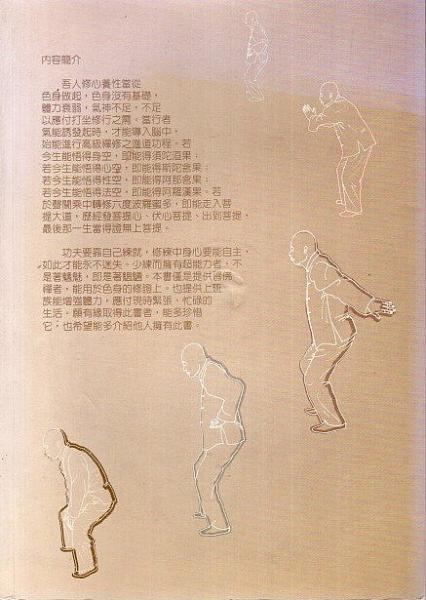 內容簡介
吾人修心養性當從
色身做起，色身沒有基礎，
體力衰弱，氣神不足，不足
以應付打坐修行之需。當行者
氣能誘發起時，才能導入腦中，
始能進行高級禪修之進道功程。若
今生能悟得身空，即能得須陀洹果；
若今生能悟得心空，即能得斯陀含果；
若今生能悟得性空，即能得阿那含果；
若今生能悟得法空，即能得阿羅漢果。若
於聲聞乘中轉修六度波羅蜜多，即能走入菩
提大道，歷經發菩提心、伏心菩提、出到菩提，
最後那一生當得證無上菩提。
功夫要靠自己練就，修練中身心要能自主，
如此才能永不迷失。少練而擁有超能力者，不
是著魑魅，即是著魍魎。本書僅是提供習佛
禪者，能用於色身的修證上。也提供上班
族能增強體力，應付現時緊張、忙碌的
生活。願有緣取得此書者，能多珍惜
它；也希望能多介紹他人擁有此書。